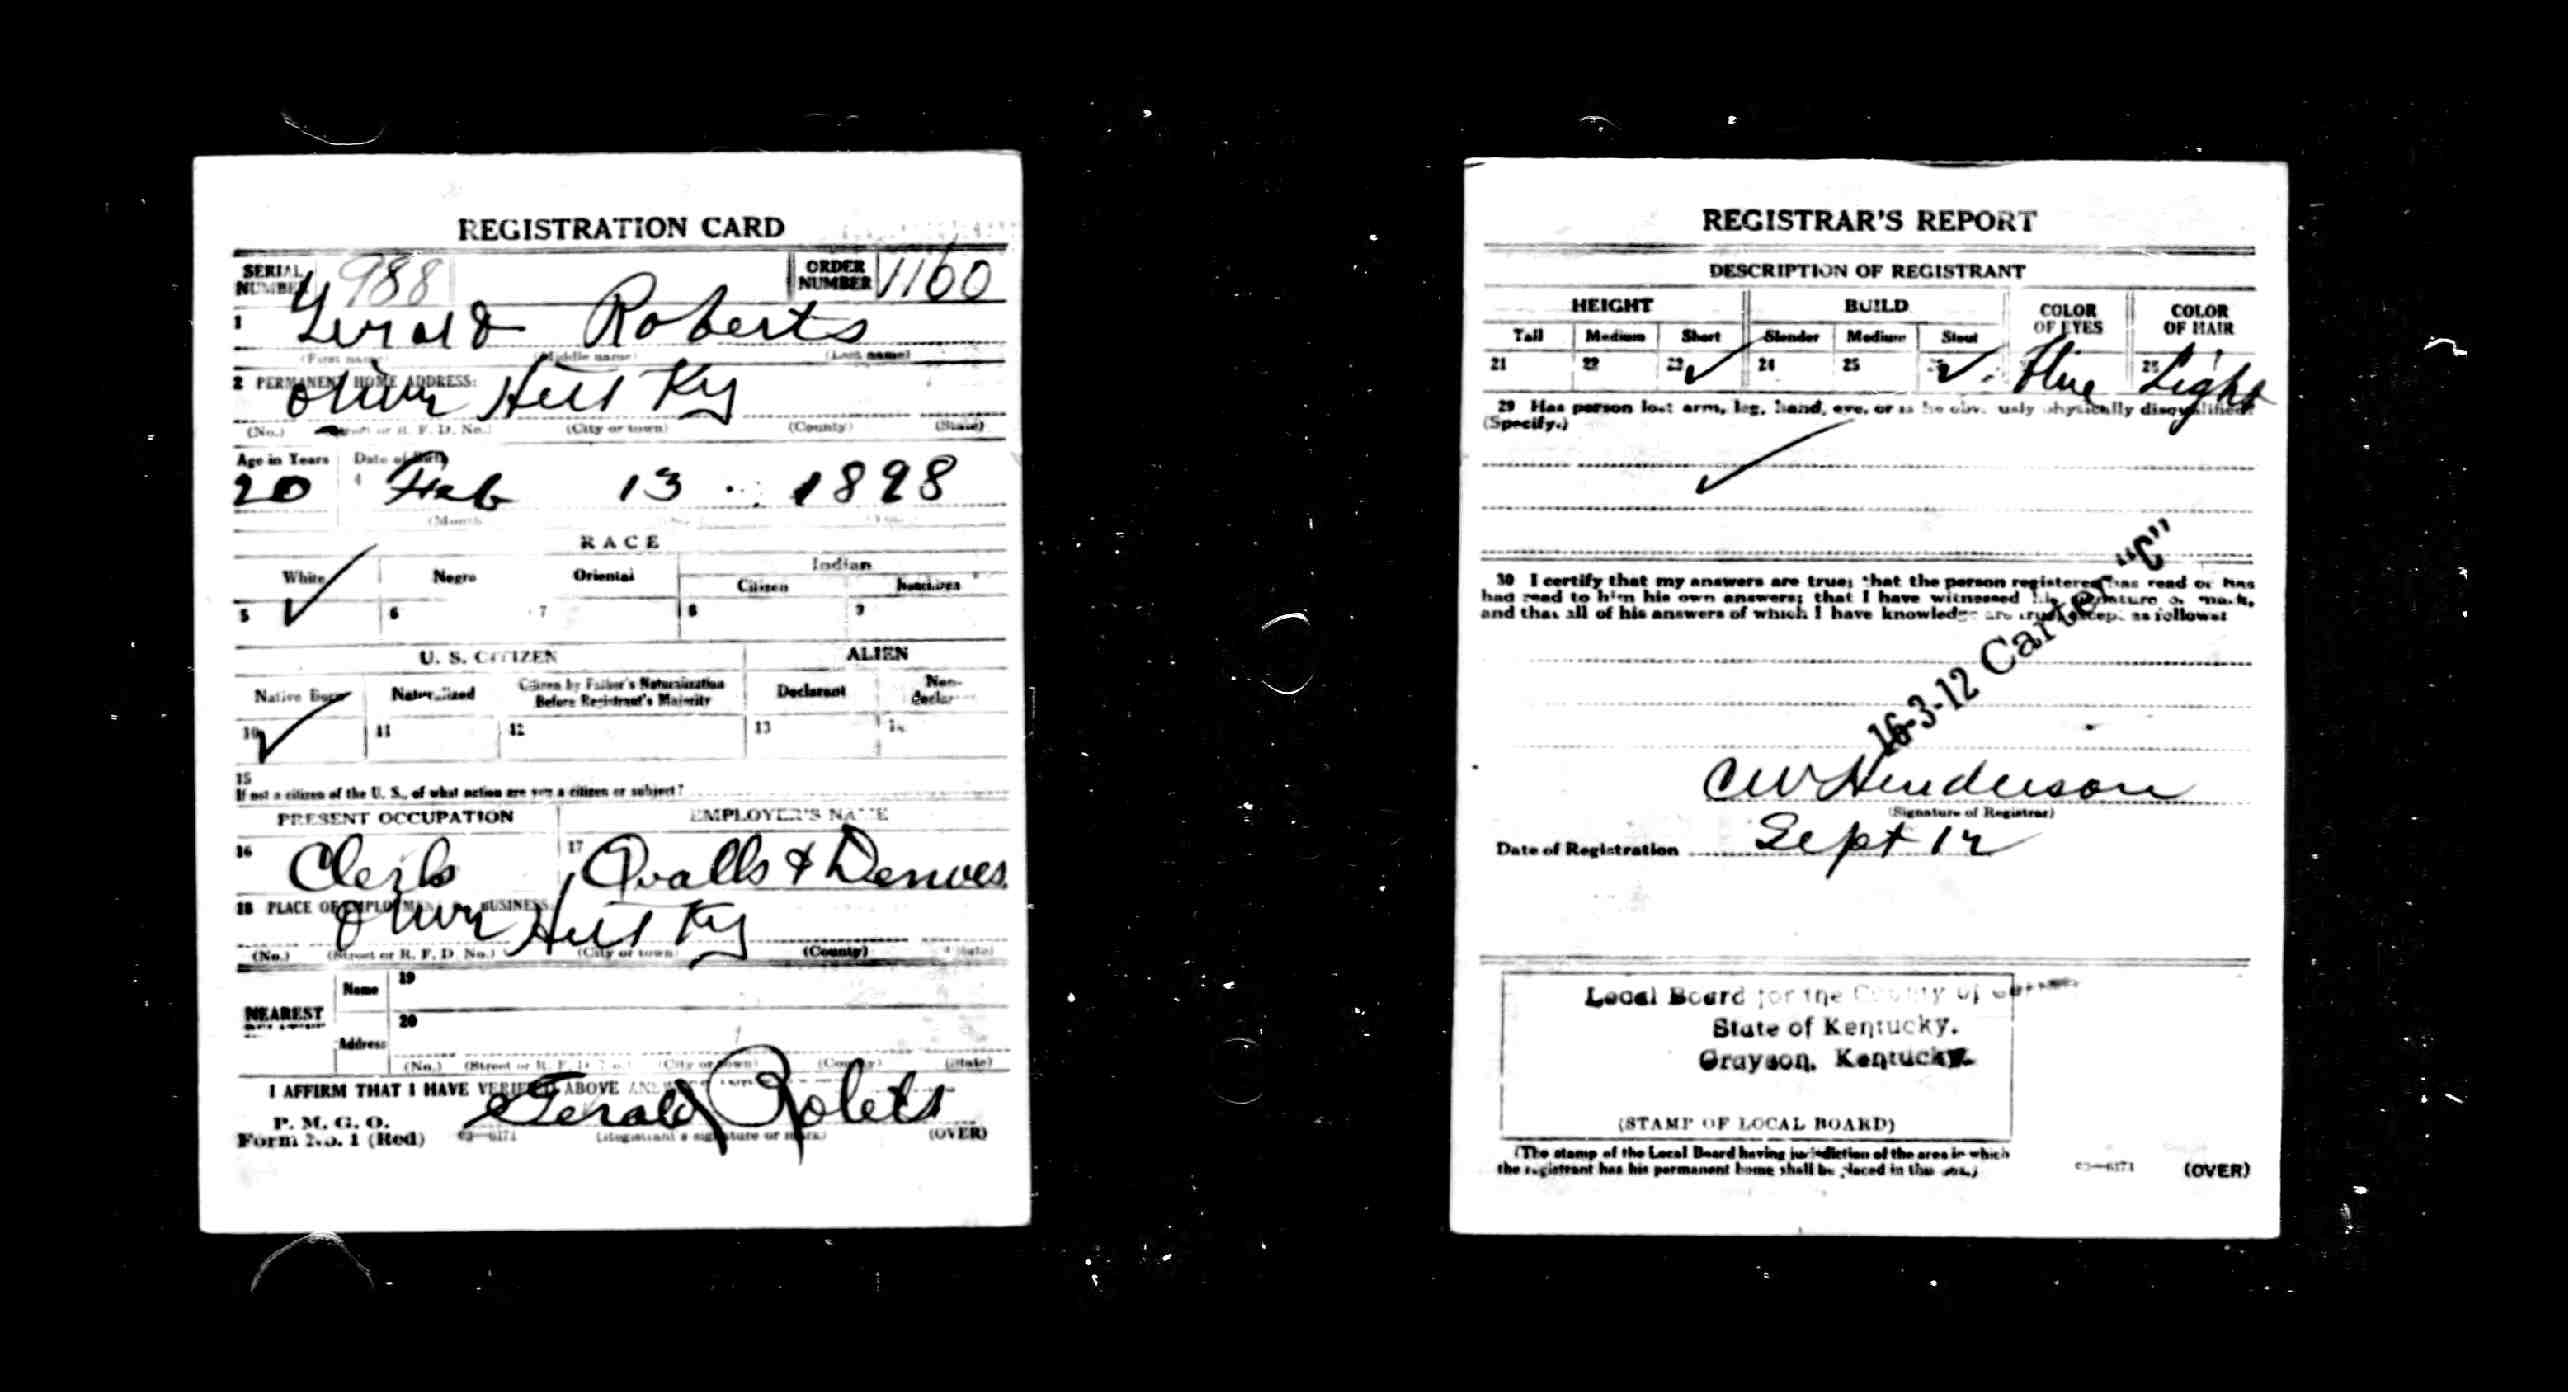 REGISTRATION CARD
SERIAL NUMBER 988 ORDER NUMBER 1160
1 Gerald Roberts
(First name) (Middle name) (Last name)
2 PERMANENT HOME ADDRESS:
Oliver Hill Ky
(No.) (Street or R. F. D. No.) (City or town) (County) (State)
Age in Years Date of Birth
20 4 Feb 13 1898
(Month
RACE
White Negro Oriental Indian
Citizen Noncitizen
5 ✓ 6 7 8 9
U. S. CITIZEN ALIEN
Native Born Naturalized Citizen by Father's Naturalization Before Registrant's Majority Declarant Non-declarant
10 ✓ 11 12 13 14
15
If not a citizen of the U. S., of what nation are you a citizen or subject?
PRESENT OCCUPATION EMPLOYER'S NAME
16 Clerk 17 Qualls &
18 PLACE OF EMPLOYMENT BUSINESS:
Oliver Hill Ky
(No.) (Street or R. F. D. No.) (City or town) (County) (State)
NEAREST Name 19
Address 20
(No.) (Street or R. F. D. No.) (City or town) (County) (State)
I AFFIRM THAT I HAVE VERIFIED ABOVE
P. M. G. O.
Form No. 1 (Red) 03—6171 Gerald Roberts
(Registrant's signature or mark) (OVER)
REGISTRAR'S REPORT
DESCRIPTION OF REGISTRANT
HEIGHT BUILD COLOR OF EYES COLOR OF HAIR
Tall Medium Short Slender Medium Stout
21 22 23 ✓ 24 25 ✓ Blue Light
29 Has person lost arm, leg, hand, eye, or is he obviously physically disqualified?
(Specify.)
✓
30 I certify that my answers are true; that the person registered has read or has
had read to him his own answers; that I have witnessed his signature or mark,
and that all of his answers of which I have knowledge are true, except as follows:
16-3-12 Carter "C"
CW Henderson
(Signature of Registrar)
Date of Registration Sept 12
Local Board for the County of Carter
State of Kentucky.
Grayson, Kentucky.
(STAMP OF LOCAL BOARD)
(The stamp of the Local Board having jurisdiction of the area in which
the registrant has his permanent home shall be placed in this box.)
03—6171 (OVER)